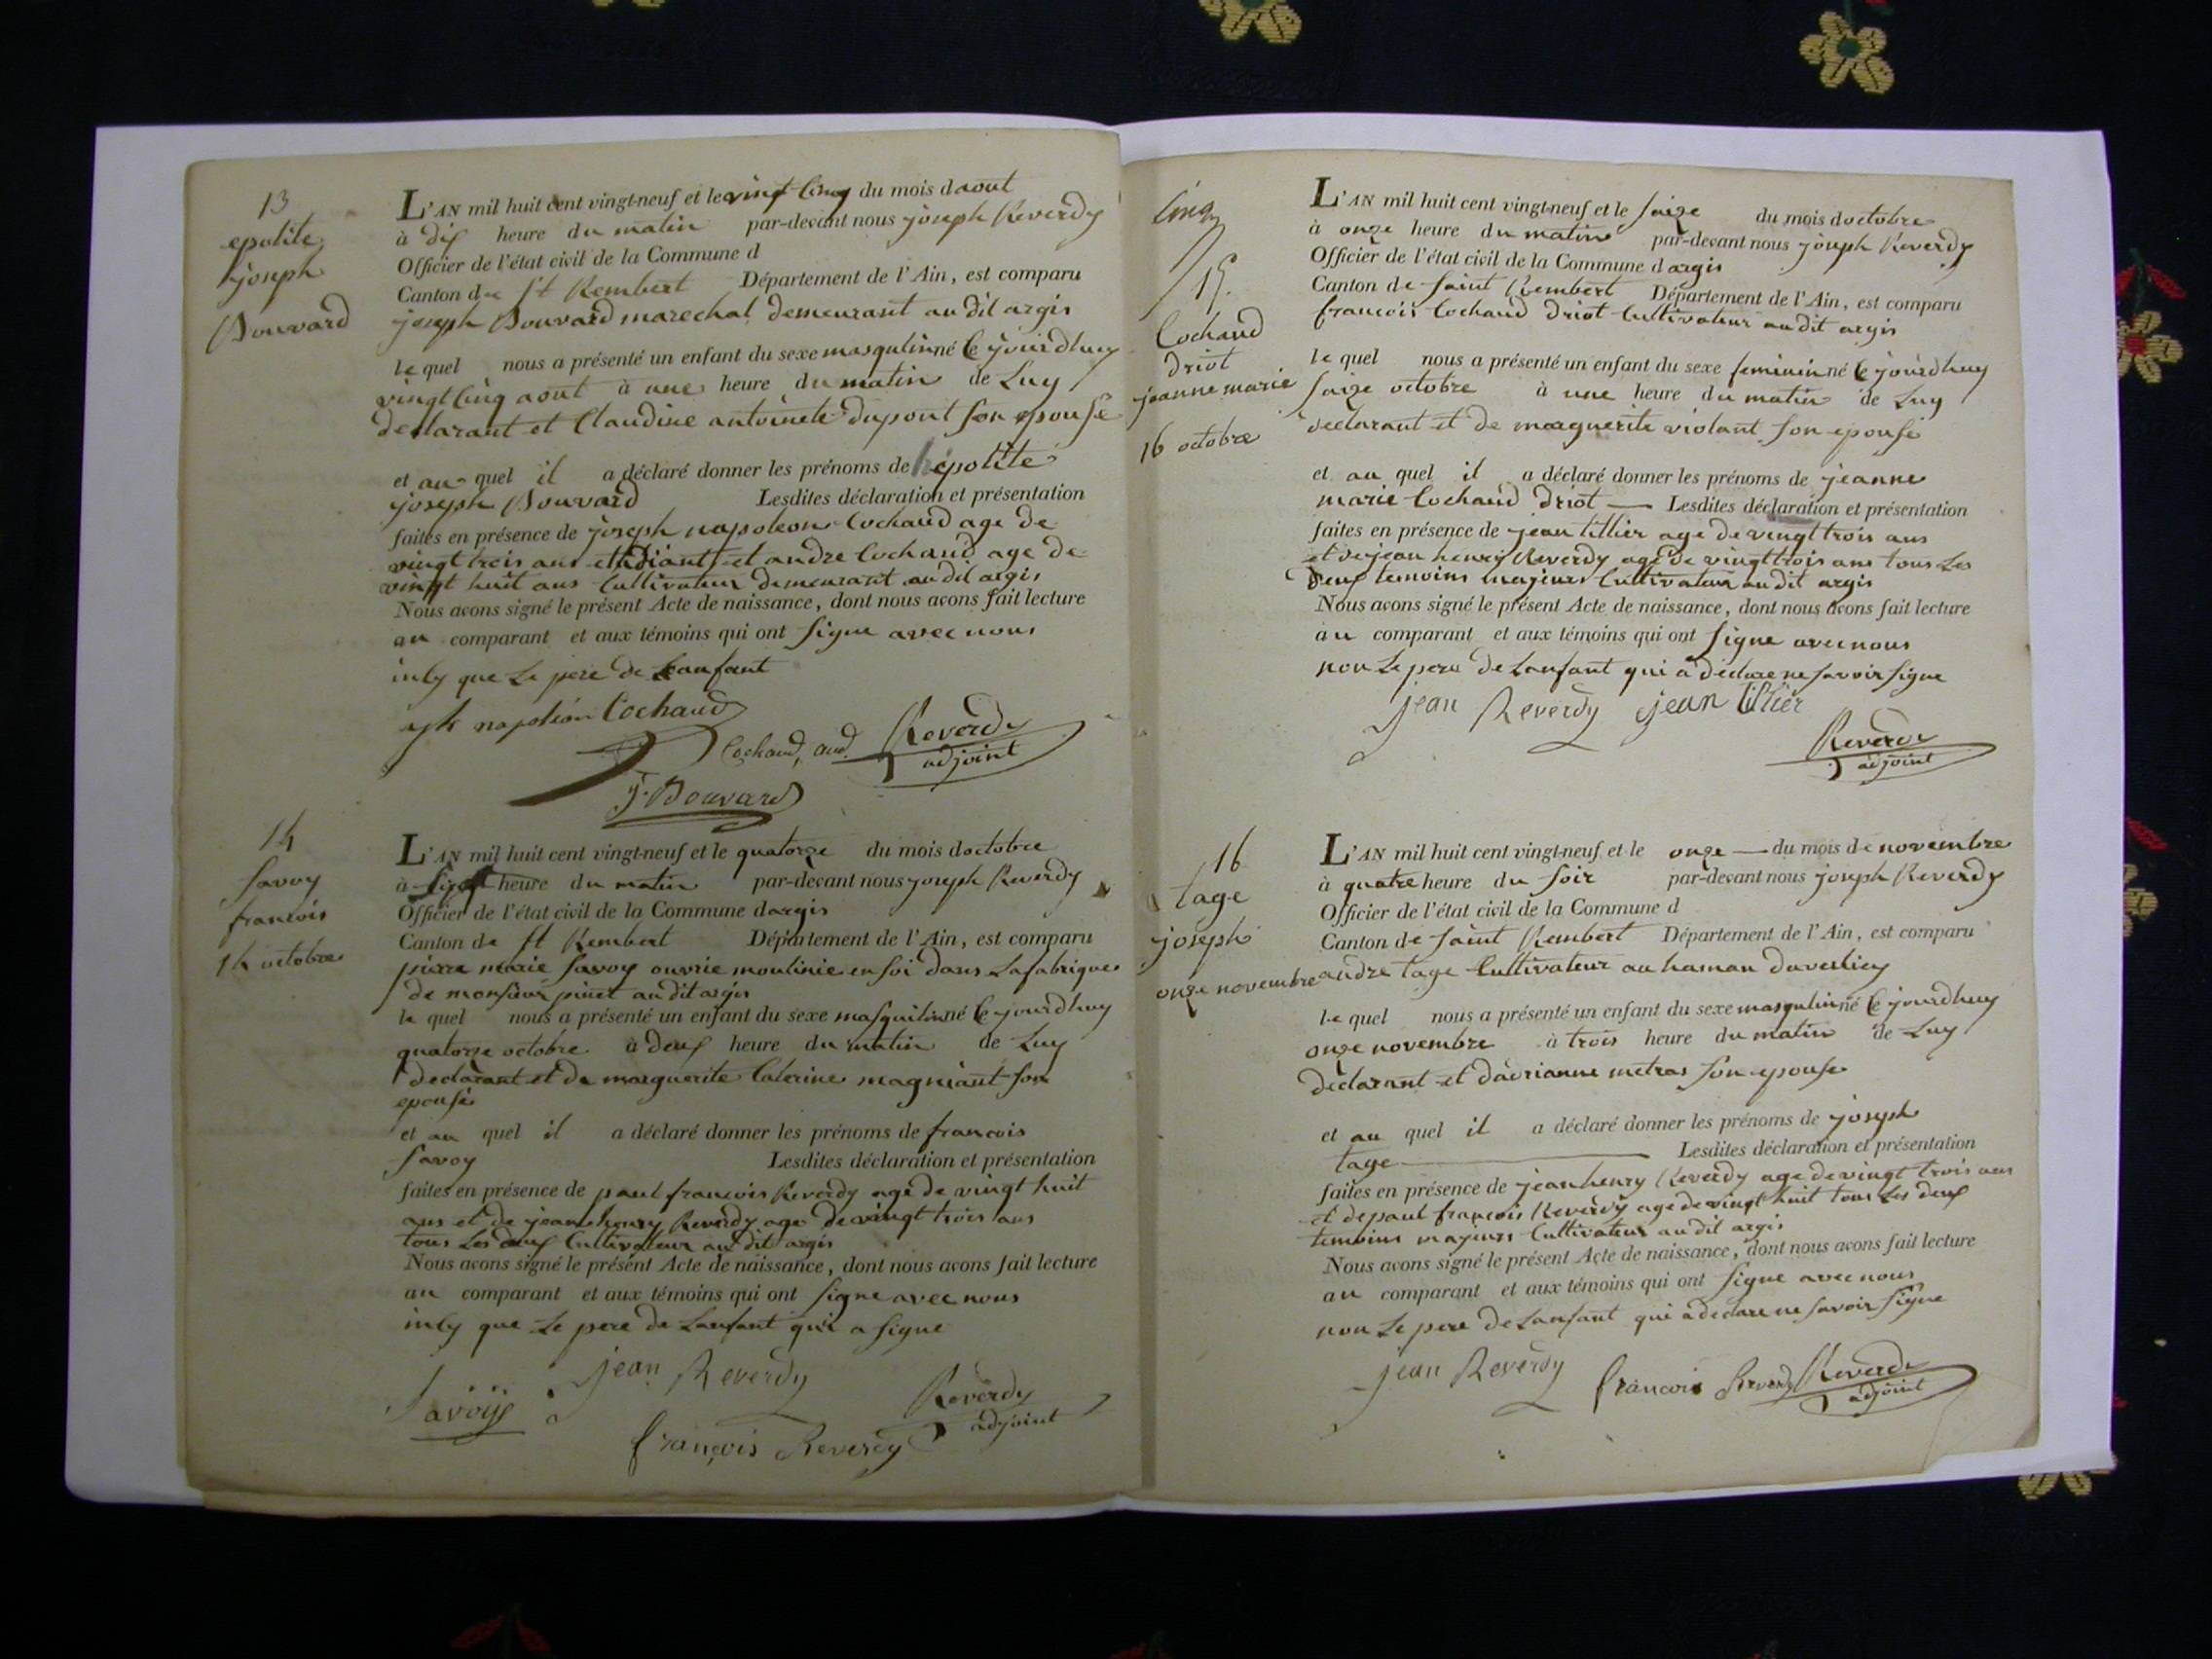 13
epolite
joseph
Bouvard
L'AN mil huit cent vingt-neuf et le vingt cinq du mois daout
à dix heure du matin par-devant nous joseph Reverdy
Officier de l'état civil de la Commune d
Canton de St Rembert Département de l'Ain, est comparu
joseph Bouvard marechal demeurant au dit argis
le quel nous a présenté un enfant du sexe masqulin né le jourdhuy
vingt cinq aout à une heure du matin de Luy
declarant et Claudine antoinete dupont son epouse
et au quel il a déclaré donner les prénoms de epolite
joseph Bouvard Lesdites déclaration et présentation
faites en présence de joseph napoleon Cochaud age de
vingt trois ans etudiant et andre Cochaud age de
vingt huit ans Cultivateur demeurant au dit argis
Nous avons signé le présent Acte de naissance, dont nous avons fait lecture
au comparant et aux témoins qui ont signe avec nous
insy que Le pere de Lanfant
jph napoléon Cochaud
Cochaud, and. Reverdy
adjoint
J. Bouvard
14
Savoy
francois
14 octobre
L'AN mil huit cent vingt-neuf et le quatorze du mois doctobre
à heure du matin par-devant nous joseph Reverdy
Officier de l'état civil de la Commune dargis
Canton de St Rembert Département de l'Ain, est comparu
pierre marie Savoy ouvrie moulinie en soi dans Lafabrique
de monsieur pinet au dit argis
le quel nous a présenté un enfant du sexe masquilin né le jourdhuy
quatorze octobre à deux heure du matin de Luy
declarant et de marguerite Caterine magniant son
epouse
et au quel il a déclaré donner les prénoms de francois
Savoy Lesdites déclaration et présentation
faites en présence de paul francois Reverdy age de vingt huit
ans et de jean henry Reverdy age de vingt trois ans
tous Les deux Cultivateur au dit argis
Nous avons signé le présent Acte de naissance, dont nous avons fait lecture
au comparant et aux témoins qui ont signe avec nous
insy que Le pere de Lanfant qui a signe
Savoye jean Reverdy
Reverdy
adjoint
françois Reverdy
cinq
15.
Cochaud
driot
jeanne marie
16 octobre
L'AN mil huit cent vingt-neuf et le saize du mois doctobre
à onze heure du matin par-devant nous joseph Reverdy
Officier de l'état civil de la Commune dargis
Canton de saint Rembert Département de l'Ain, est comparu
francois Cochaud driot Cultivateur au dit argis
le quel nous a présenté un enfant du sexe feminin né le jourdhuy
saize octobre à une heure du matin de Luy
declarant et de marguerite violant son epouse
et au quel il a déclaré donner les prénoms de jeanne
marie Cochaud driot — Lesdites déclaration et présentation
faites en présence de jean tillier age de vingt trois ans
et de jean henry Reverdy age de vingt trois ans tous Les
deux temoins majeurs Cultivateur au dit argis
Nous avons signé le présent Acte de naissance, dont nous avons fait lecture
au comparant et aux témoins qui ont signe avec nous
non Le pere de Lanfant qui a declare ne savoir signe
jean Reverdy jean tillier
Reverdy
adjoint
16
tage
joseph
onze novembre
L'AN mil huit cent vingt-neuf et le onze — du mois de novembre
à quatre heure du soir par-devant nous joseph Reverdy
Officier de l'état civil de la Commune d
Canton de saint Rembert Département de l'Ain, est comparu
andre tage Cultivateur au haman
le quel nous a présenté un enfant du sexe masqulin né le jourdhuy
onze novembre à trois heure du matin de Luy
declarant et dadrianne metras son epouse
et au quel il a déclaré donner les prénoms de joseph
tage — Lesdites déclaration et présentation
faites en présence de jean henry Reverdy age de vingt trois ans
et de paul francois Reverdy age de vingt huit tous Les deux
temoins majeurs Cultivateur au dit argis
Nous avons signé le présent Acte de naissance, dont nous avons fait lecture
au comparant et aux témoins qui ont signe avec nous
non Le pere de Lanfant qui a declare ne savoir signe
jean Reverdy francois Reverdy Reverdy
adjoint